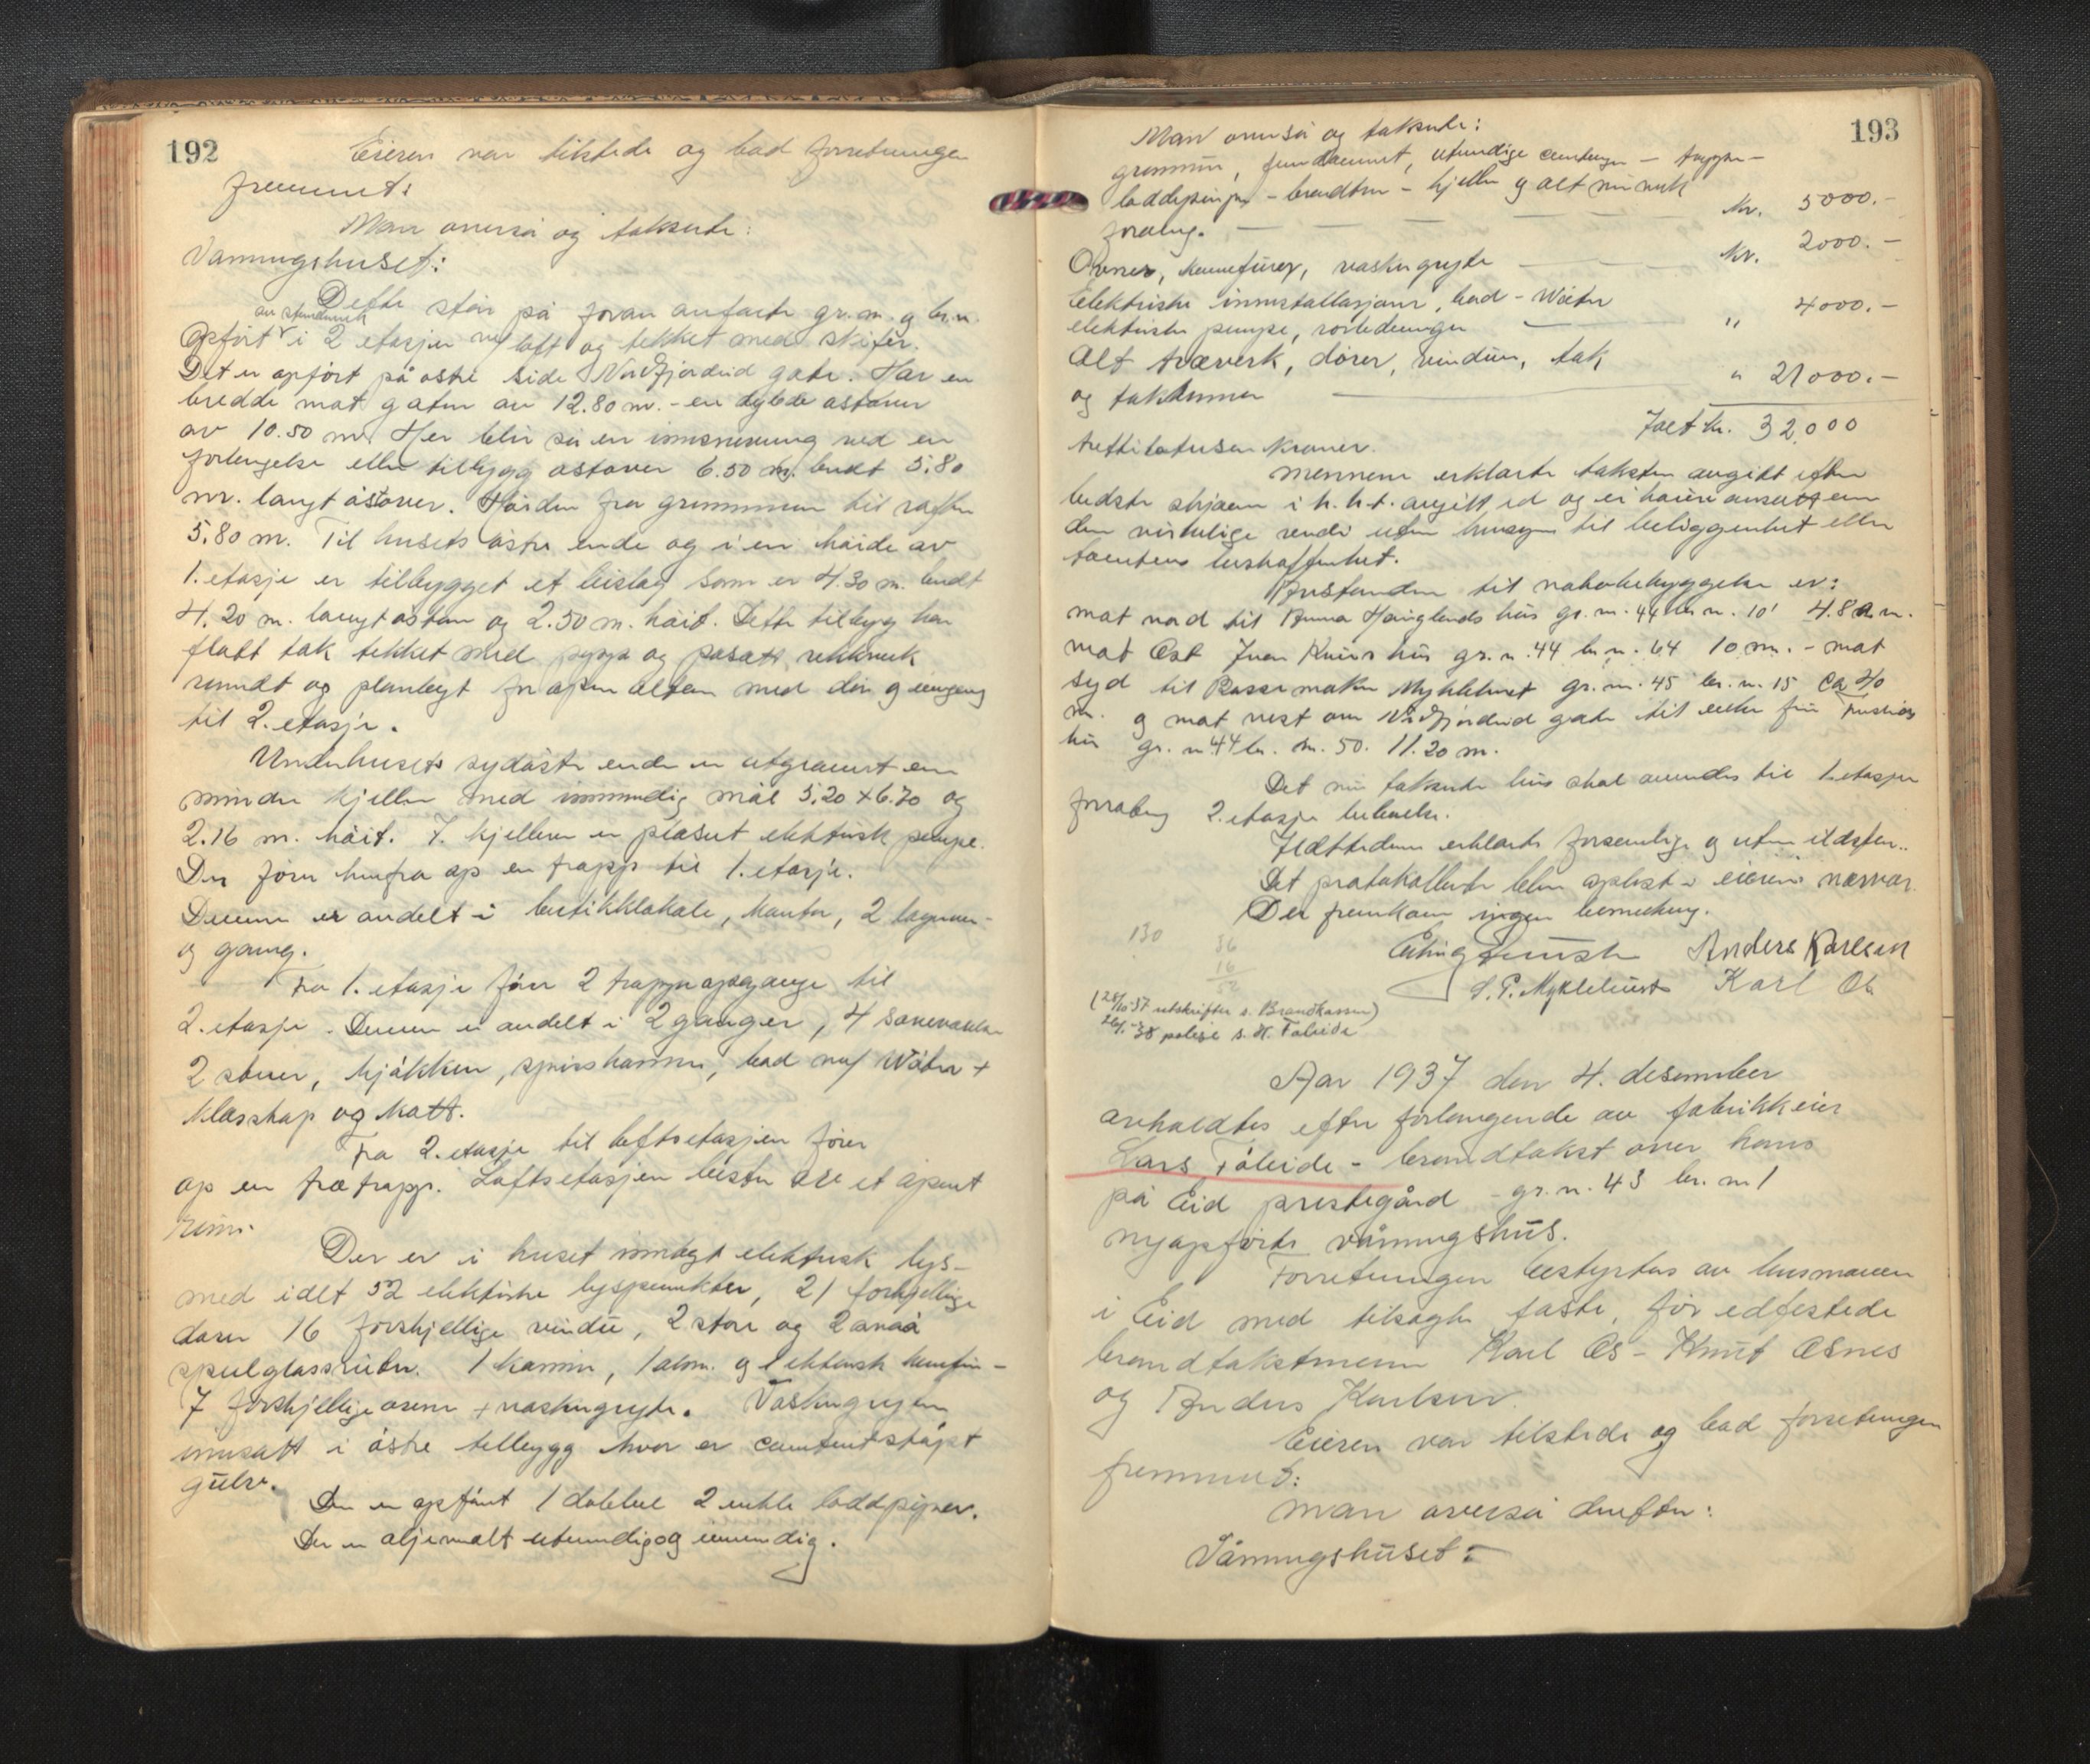 192
Eieren var tilstede og bad forretningen
fremmet:
Man overså og takserte:
Vaaningshuset:
Dette står på foran anførte gr.n. og br.n.
av stenderverk
Opført i 2 etasjer m/ loft og tekket med skifer.
Det er opført på østre side Nordfjordeid gate. Har en
bredde mot gaten av 12.80 m. - en dybde østover
av 10.50 m. Her blir så en innsnevring ved en
forlengelse eller tilbygg østover 6.50 m. bredt 5.80
m. langt østover. Høiden fra grunnmur til raften
5.80 m. Til husets østre ende og i en høide av
1. etasje er tilbygget et bislag som er 4.30 m. bredt
4.20 m. langt østover og 2.50 m. høit. Dette tilbygg har
flatt tak tekket med papp og påsatt rekkverk
rundt og planlagt for åpen altan med dør og inngang
til 2. etasje.
Under husets sydøstre ende er utgravet en
mindre kjeller med innvendig mål 5.20 x 6.70 og
2.16 m. høit. I kjelleren er plasert elektrisk pumpe.
Der fører herfra op en trapp til 1. etasje.
Denne er avdelt i butikklokale, kontor, 2 lagerrum
og gang.
Fra 1. etasje fører 2 trappeopganger til
2. etasje. Denne er avdelt i 2 ganger, 4 soveværelser
2 stuer, kjøkken, spiskammer, bad m/ Wåter +
klæsskap og kott.
Fra 2. etasje til loftsetasjen fører
op en tretrapp. Loftsetasjen består av et åpent
rum.
Der er i huset innlagt elektrisk lys -
med idlt 52 elektriske lyspunkter, 21 forskjellige
dører 16 forskjellige vindu, 2 store og 2 små
speilglassruter. 1 kamin, 1 alm. og 1 elektrisk komfyr -
7 forskjellige ovner + vaskegryte. Vaskegryten
innsatt i østre tilbygg hvor er cementstøpt
gulv.
Der er opført 1 dobbel 2 enkle loddpiper.
Der er oljemalt utvendig og innvendig.
193
Man overså og takserte:
grunnmur, fundament, utvendige cementtrapper - trappe -
loddpiper - brandmur - kjeller og alt murverk
forøvrig. Kr. 5000.-
Ovner, komfurer, vaskegryte Kr. 2000.-
Elektriske innstallasjoner, bad - Wåter
elektriske pumpe, rørledninger " 4000.-
Alt treverk, dører, vinduer, tak
og takrenner " 21000.-
Ialt kr. 32.000
trettitotusen kroner.
Mennene erklærte taksten avgitt efter
bedste skjønn i h.h.t. avgitt ed og ei høiere ansatt enn
den virkelige verdi uten hensyn til beliggenhet eller
tomtens beskaffenhet.
Avstanden til nabobebyggelse er:
mot nord til Anna Hauglands hus gr.n. 44 br.n. 10 4.80 m.
mot Øst Ivar Knivs hus gr.n. 44 br.n. 64 10 m. - mot
syd til Rasser maker Myklebust gr.n. 45 br.n. 15 ca 40
m. og mot vest om Nordfjordeid gate til enke fru
hus gr.n 44 br.n. 50. 11.20 m.
Det nu takserte hus skal anvendes til 1. etasje
forretning 2. etasje beboelse.
Ildstedene erklærte forsvarlige og uten ildsfare.
Det protokollerte blev oplest i eierens nærvær.
Der fremkom ingen bemerkning.
130 36
16
52
Anders Karlsen
S. P. Myklebust Karl Os
(28/10 37 utskrifter s. Brandkassen)
- 38 polise s. H. Taleide
Aar 1937 den 4. desember
avholdtes efter forlangende av fabrikkeier
Lars Tåleide - brandtakst over hans
på Eid prestegård - gr.n. 43 br.n 1
nyopførte våningshus.
Forretningen bestyrtes av lensmannen
i Eid med tilsagte faste, før edfestede
brandtakstmenn Karl Os - Knut Osnes
og Anders Karlsen.
Eieren var tilstede og bad forretningen
fremmet:
Man overså derefter:
Våningshuset: